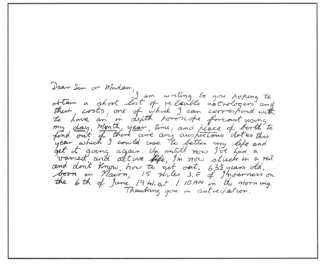 Dear Sir or Madam,
I am writing to you hoping to
obtain a short list of reliable astrologers and
their costs, one of which I can correspond with
to have an in depth horoscope forecast using
my day, month, year, time, and place of birth to
find out if there are any auspicious dates this
year which I could use to better my life and
get it going again. Up untill now I've had a
varied and active life, I'm now stuck in a rut
and don't know, how to get out. 63½ years old,
born in Nairn, 15 miles S.E of Inverness on
the 6th of June 19 at 1·10AM in the morning.
Thanking you in anticipation